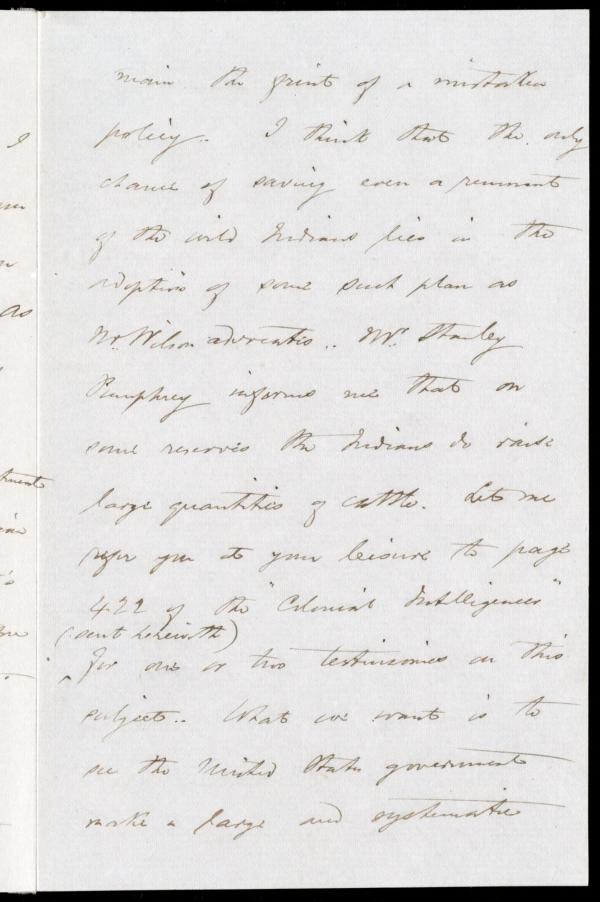 main the fruit of a mistaken
policy. I think that the only
chance of saving even a remnant
of the wild Indians lies in the
adoption of some such plan as
Mr. Wilson advocates. Mr. Stanley
Pumphrey informs me that on
some reserves the Indians do raise
large quantities of cattle. Let me
refer you at your leisure to page
422 of the "Colonial Intelligencer"
(sent herewith)
for one or two testimonies on this
subject. What we want is to
see the United States government
make a large and systematic